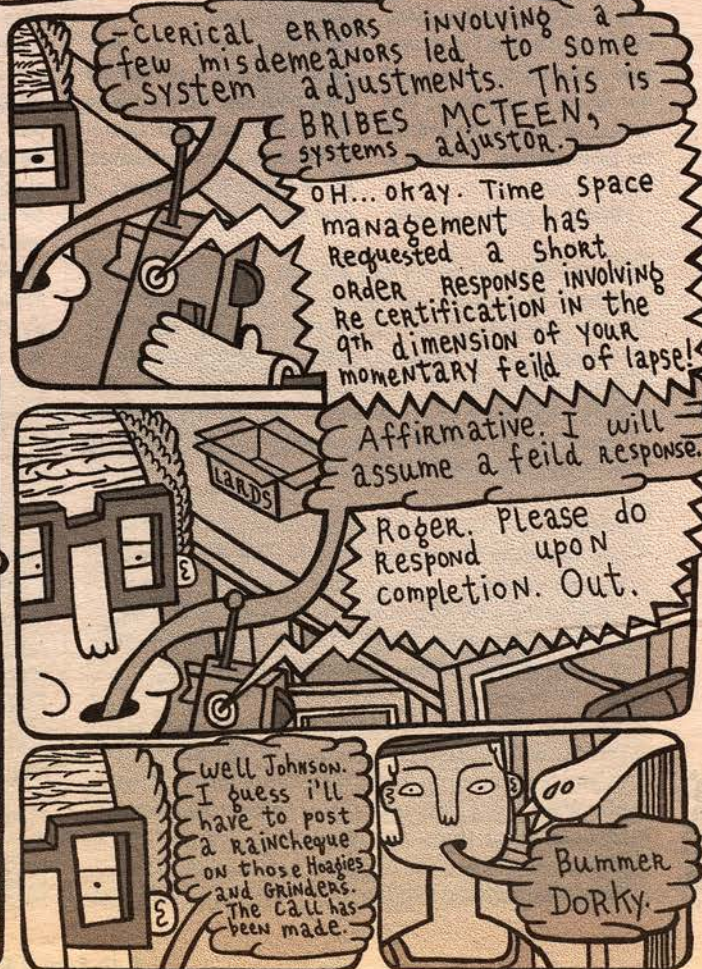 -CLERICAL ERRORS INVOLVING a
few misdemeanors led to some
system adjustments. This is
BRIBES MCTEEN,
systems adjustor.
OH... okay. Time space
management has
Requested a short
order response involving
Re certification in the
9th dimension of your
momentary feild of lapse!
Affirmative. I will
assume a feild response.
LARDS
Roger. Please do
Respond upon
completion. Out.
well Johnson.
I guess i'll
have to post
a raincheque
on those Hoagies
and Grinders.
The call has
been made.
Bummer
DORKY.